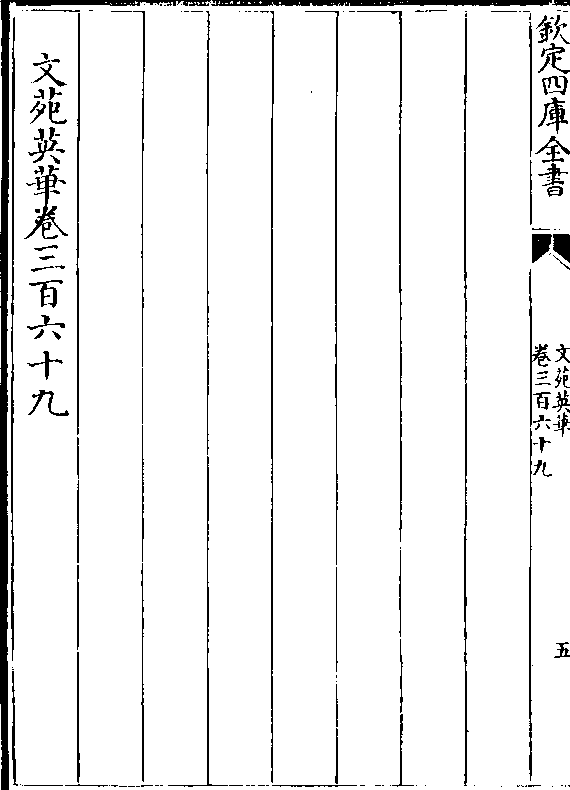 欽定四庫全書
文苑英華
卷三百六十九
五
文苑英華卷三百六十九